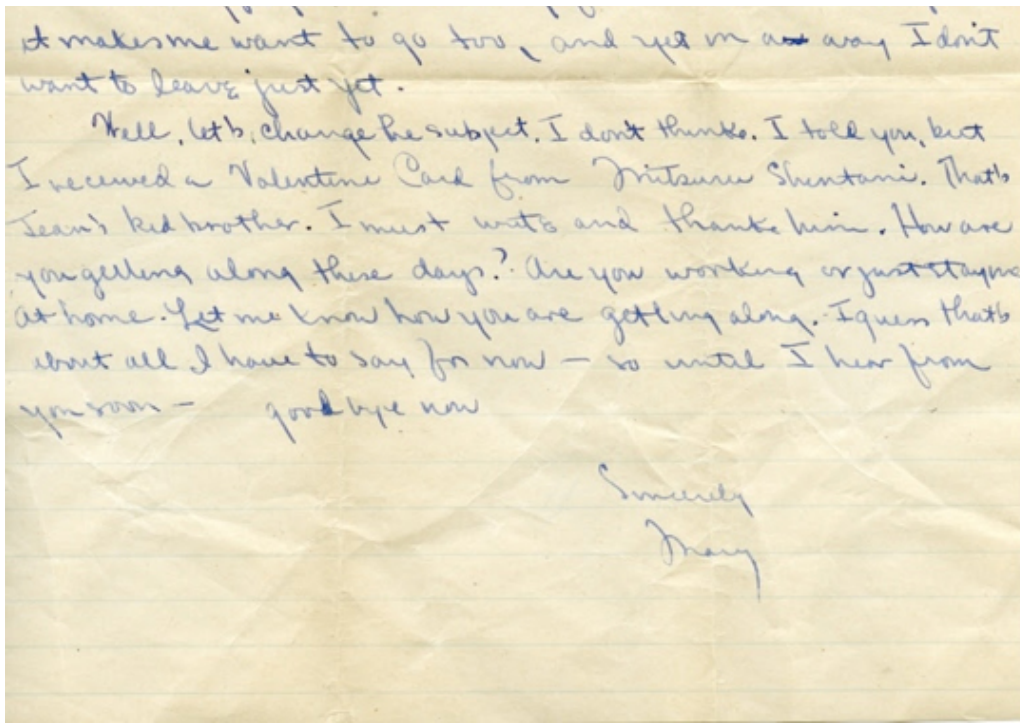 it makes me want to go too, and yet in a way I don't
want to leave just yet.
Well, let's change he subject. I don't think I told you, but
I received a Valentine Card from Mitsuru Shintani. That's
Jean's kid brother. I must write and thank him. How are
you getting along these days? Are you working or just staying
at home. Let me know how you are getting along. I guess that's
about all I have to say for now — so until I hear from
you soon — good bye now
Sincerely
Mary